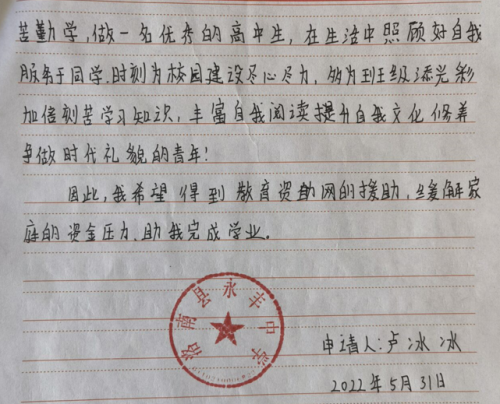 苦勤学,做一名优秀的高中生,在生活中照顾好自我
服务于同学.时刻为校园建设尽心尽力,努为班级添光彩
加倍刻苦学习知识,丰富自我阅读提升自我文化修养
争做时代礼貌的青年!
因此,我希望得到教育资助网的援助,缓解家
庭的资金压力.助我完成学业。
洛南县永丰中学
申请人:卢冰冰
2022年5月31日